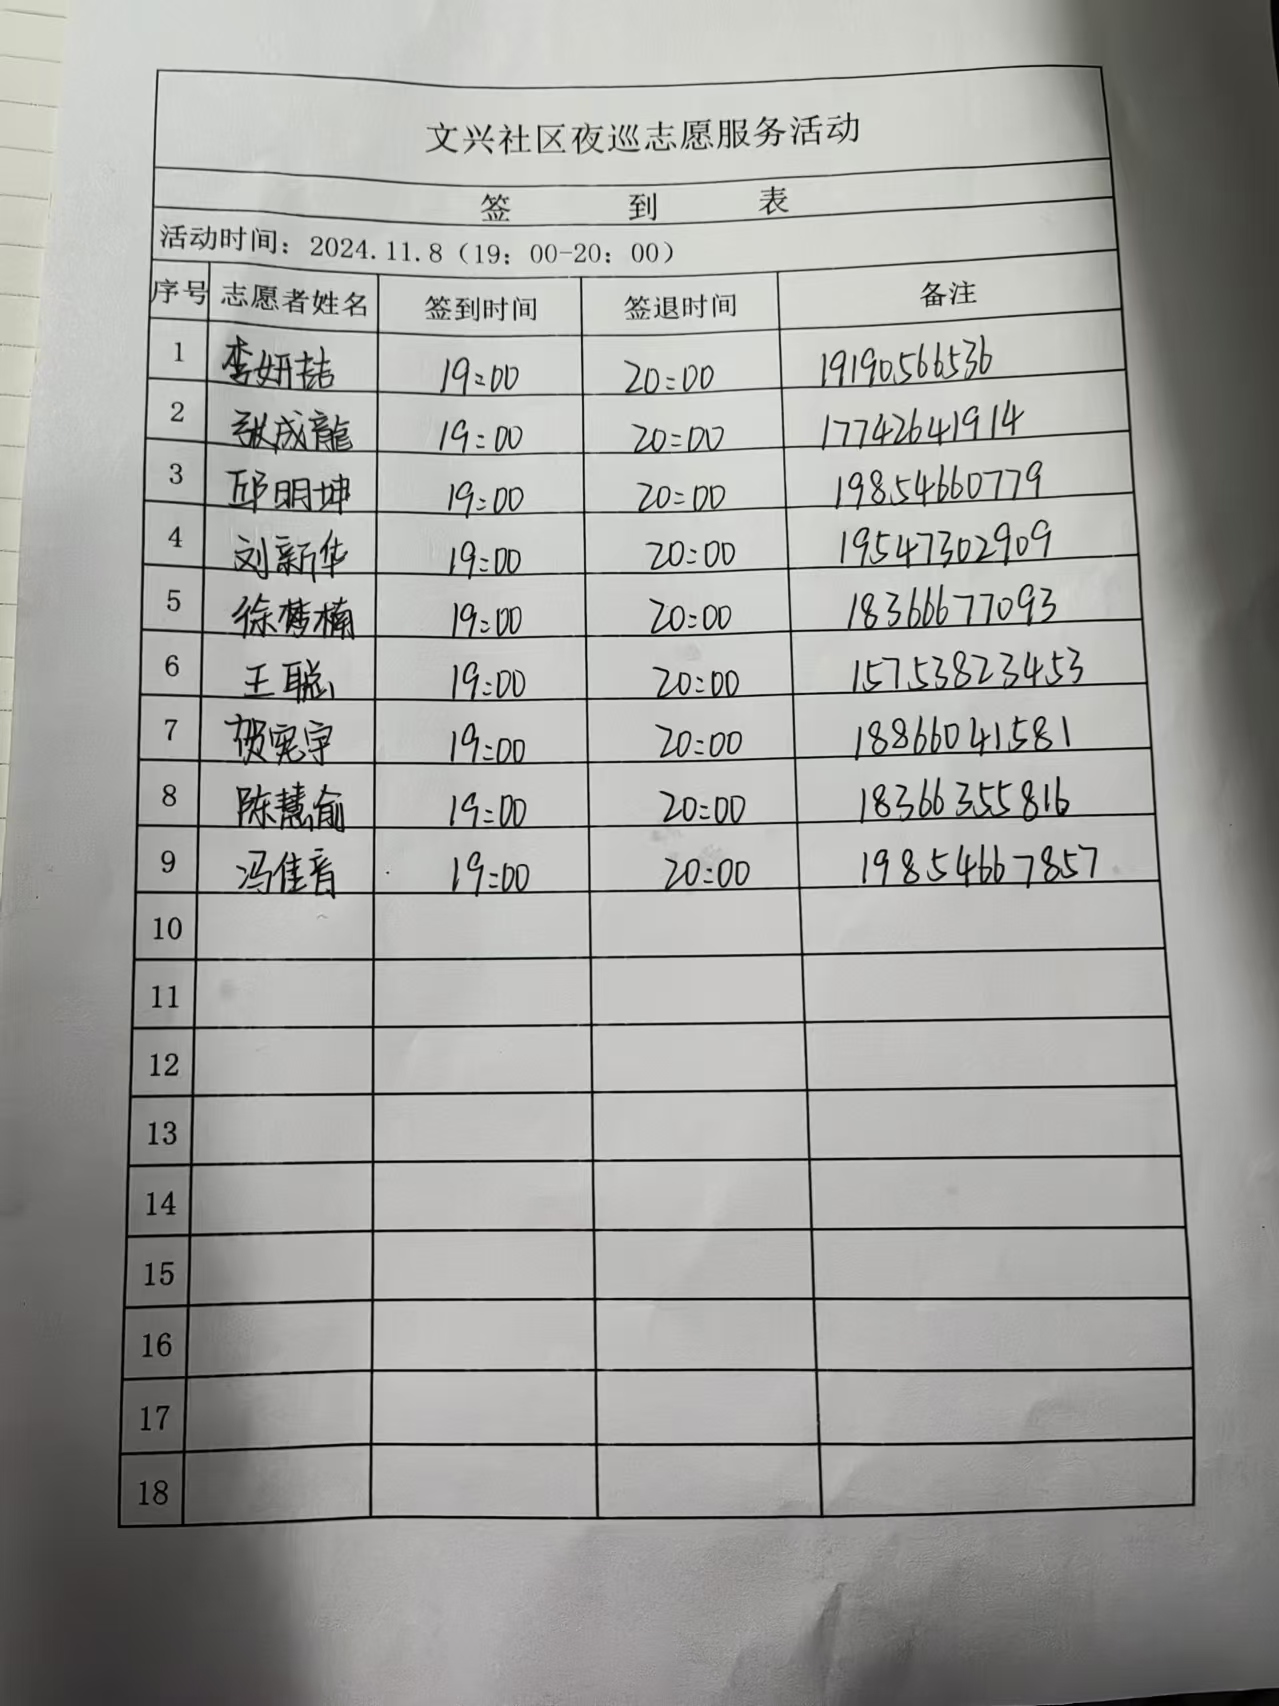 文兴社区夜巡志愿服务活动
签 到 表
活动时间：2024.11.8（19：00-20：00）
序号 志愿者姓名 签到时间 签退时间 备注
1 李妍喆 19:00 20:00 19190566536
2 张成龍 19:00 20:00 17742641914
3 邱明坤 19:00 20:00 19854660779
4 刘新华 19:00 20:00 19547302909
5 徐梦楠 19:00 20:00 18366677093
6 王聪 19:00 20:00 15753823453
7 贺宪宇 19:00 20:00 18866041581
8 陈慧俞 19:00 20:00 18366355816
9 冯佳音 19:00 20:00 19854667857
10
11
12
13
14
15
16
17
18